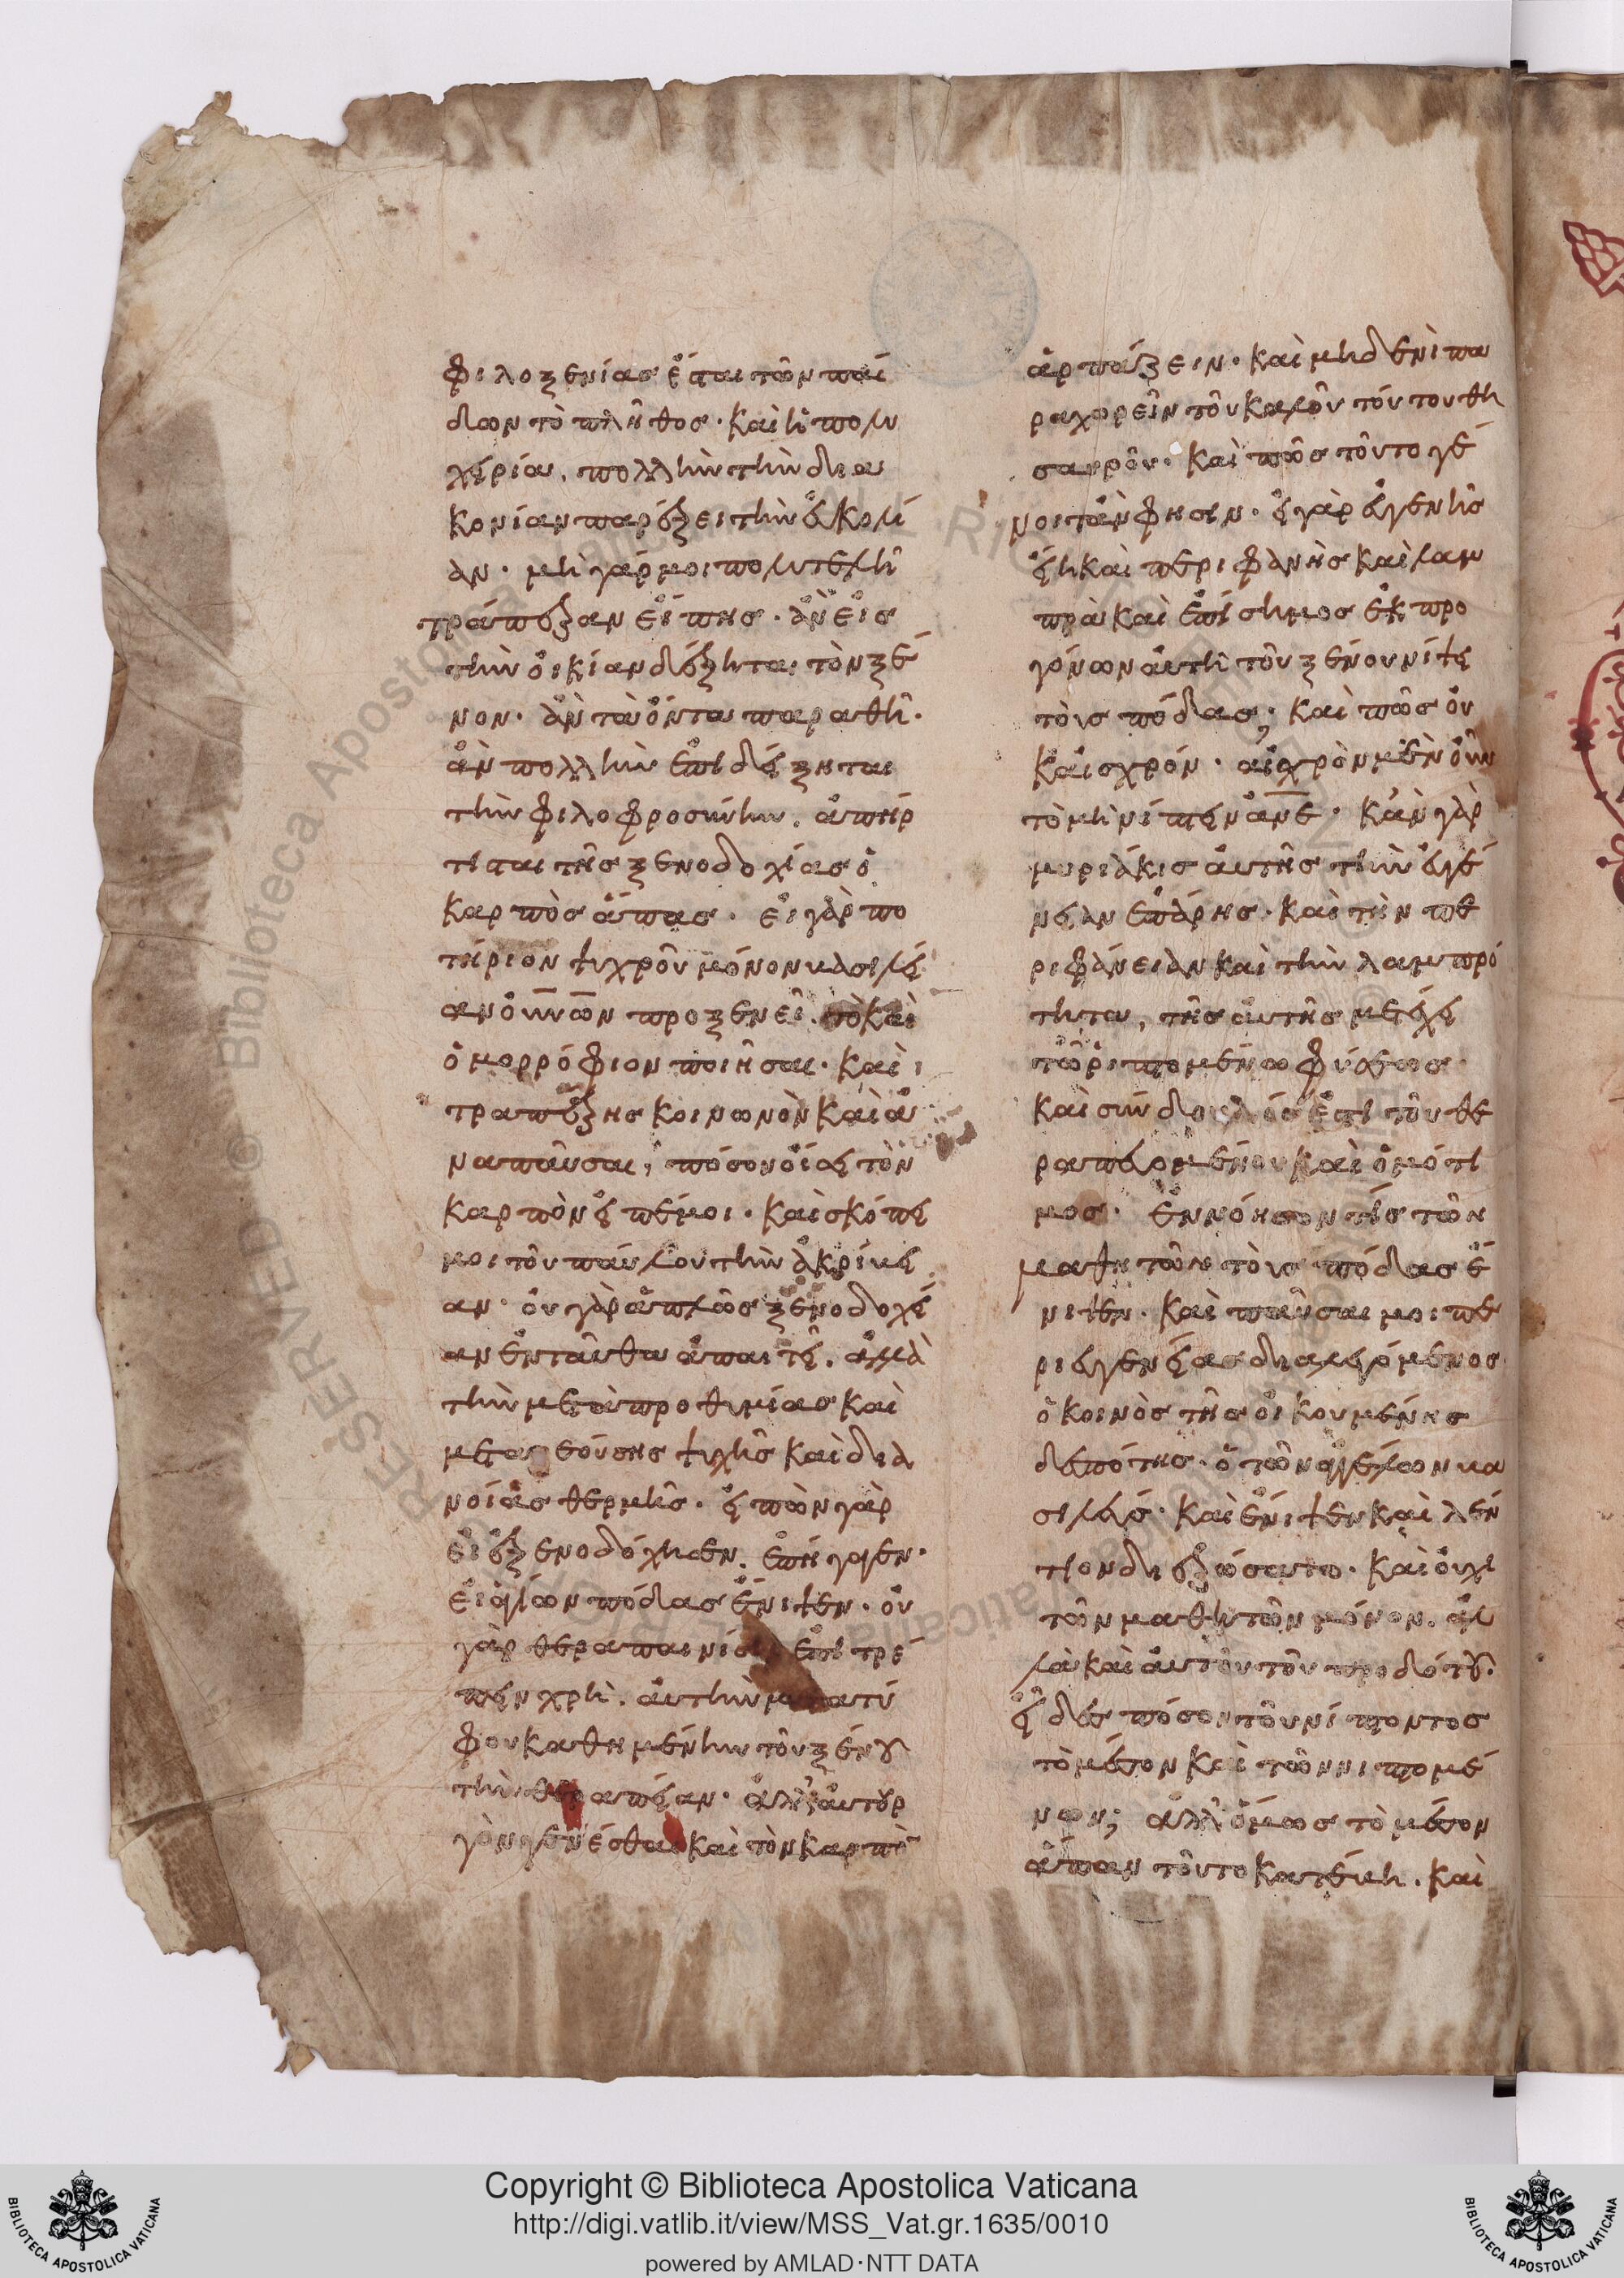 φιλοξενίας ἔσται τῶν παί
δων τὸ πλῆθος· καὶ ἡ πολυ
χειρία, πολλὴν τὴν δια
κονίαν παρέξει τὴν εὐκολί
αν· μὴ γάρ μοι πολυτελῆ
τράπεζαν εἴπης· ἂν εἰς
τὴν οἰκίαν δέξηται τὸν ξέ
νον· ἂν τὰ ὄντα παραθῆ·
ἂν πολλὴν ἐπιδείξηται
τὴν φιλοφροσύνην, ἀπήρ
τισται τῆς ξενοδοχίας ὁ
καρπὸς ἅπας· εἰ γὰρ πο
τήριον ψυχροῦ μόνον βασιλεί
αν οὐνῶν προξενεῖ, τὸ καὶ
ὁμορρόφιον ποιῆσαι· καὶ
τραπέζης κοινωνὸν καὶ ἀ
ναπαῦσαι, πόσον οἴσει τὸν
καρπὸν εἰπέ μοι· καὶ σκόπει
μοι τοῦ παύλου τὴν ἀκρίβει
αν· οὐ γὰρ ἁπλῶς ξενοδοχεί
αν ἐνταῦθα ἀπαιτεῖ, ἀλλὰ
τὴν μετὰ προθυμίας καὶ
μετα ζεούσης ψυχῆς καὶ δια
νοίας θερμῆς· εἰπὼν γὰρ
εἰ ἐξενοδόχησεν, ἐπήγαγεν·
εἰ ἁγίων πόδας ἔνιψεν· οὐ
γὰρ θεραπαινίσιν ἐπιτρέ
πειν χρὴ, αὐτὴν μετα τύ
φου καθημένην τοῦ ξένου
τὴν θεραπείαν· ἀλλ' αὐτουρ
γὸν γενέσθαι καὶ τὸν καρπὸν
ἁρπάζειν· καὶ μηδενὶ πα
ραχορεῖν τοῦ καλοῦ τούτου θη
σαυροῦ· καὶ πῶς τοῦτο γέ
νοιτ' ἂν φησιν· εἰ γὰρ εὐγενὴς
εἴη καὶ περιφανὴς καὶ λαμ
πρὰ καὶ ἐπίσημος ἐκ προ
γόνων αὐτὴ τοῦ ξένου νίψει
τοὺς πόδας; καὶ πῶς οὐ
κ αἰσχρόν· αἰσχρὸν μὲν οὖν
τὸ μὴ νίπτειν ἄνε· κἂν γὰρ
μυριάκις αὐτῆς τὴν εὐγέ
νειαν ἐπάρης· καὶ τὴν πε
ριφάνειαν καὶ τὴν λαμπρό
τητα, τῆς αὐτῆς μετέχει
τῶ νιπτομένω φύσεως
καὶ σύνδουλός ἐστι τοῦ θε
ραπευομένου καὶ ὁμότι
μος· ἐννόησον τίς τῶν
μαθητῶν τοὺς πόδας ἔ
νιψεν· καὶ παῦσαι μοι πε
ρὶ εὐγενείας διαλεγόμενος·
ὁ κοινὸς τῆς οἰκουμένης
δεσπότης· ὁ τῶν ἀγγέλων βα
σιλεύς· καὶ ἔνιψεν καὶ λέν
τιον διεζώσατο· καὶ οὐχὶ
τῶν μαθητῶν μόνον, ἀλ
λὰ καὶ αὐτοῦ τοῦ προδότου·
εἶδες πόσον τοῦ νίπτοντος
τὸ μέσον καὶ τῶν νιπτομέ
νων; ἀλλ' ὅμως τὸ μέσον
ἅπαν τοῦτο κατέβη, καὶ
Copyright © Biblioteca Apostolica Vaticana
http://digi.vatlib.it/view/MSS_Vat.gr.1635/0010
powered by AMLAD·NTT DATA
BIBLIOTECA APOSTOLICA VATICANA
BIBLIOTECA APOSTOLICA VATICANA